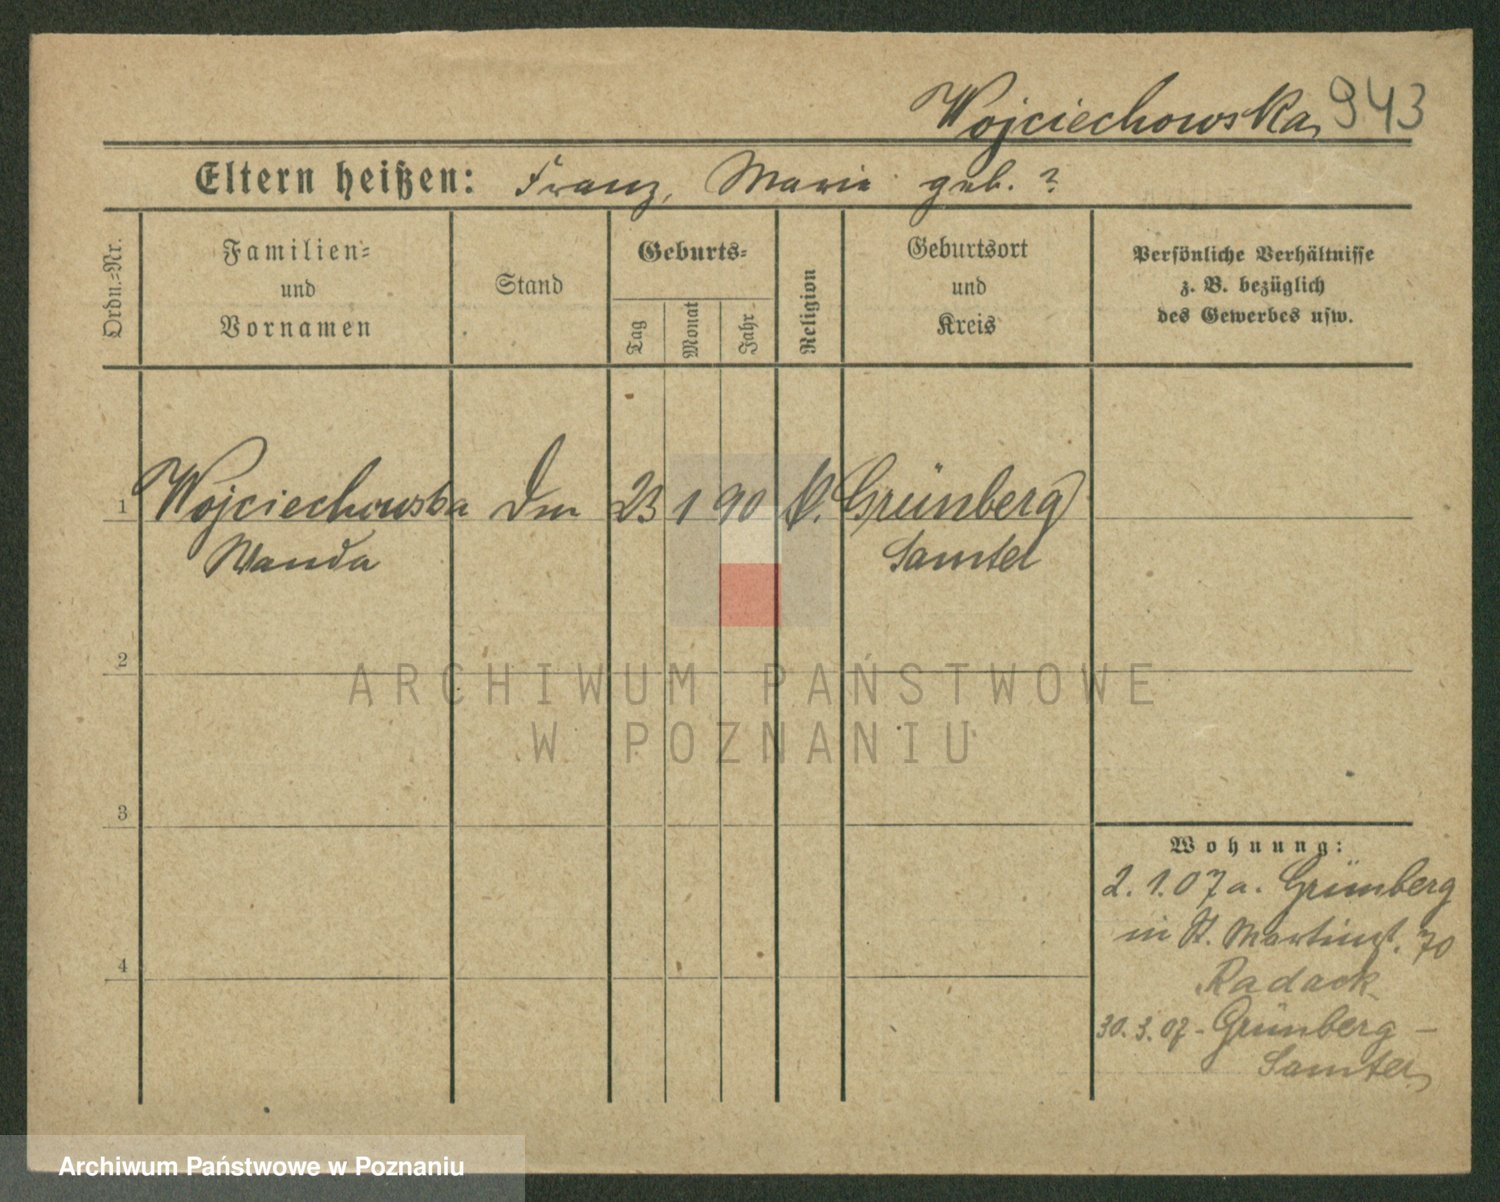 Wojciechowska 943
Eltern heißen: Franz, Marie geb. ?
Ordn.=Nr.
Familien=
und
Vornamen
Stand
Geburts=
Tag
Monat
Jahr
Religion
Geburtsort
und
Kreis
Persönliche Verhältnisse
z. B. bezüglich
des Gewerbes usw.
1 Wojciechowska 23 1 90 k. Grünberg
Wanda Samter
2
ARCHIWUM PAŃSTWOWE
W POZNANIU
3
Wohnung:
2. 1. 07 a. Grünberg
in St. Martinst. 70
Radack
4
30. 3. 07 - Grünberg -
Samter
Archiwum Państwowe w Poznaniu